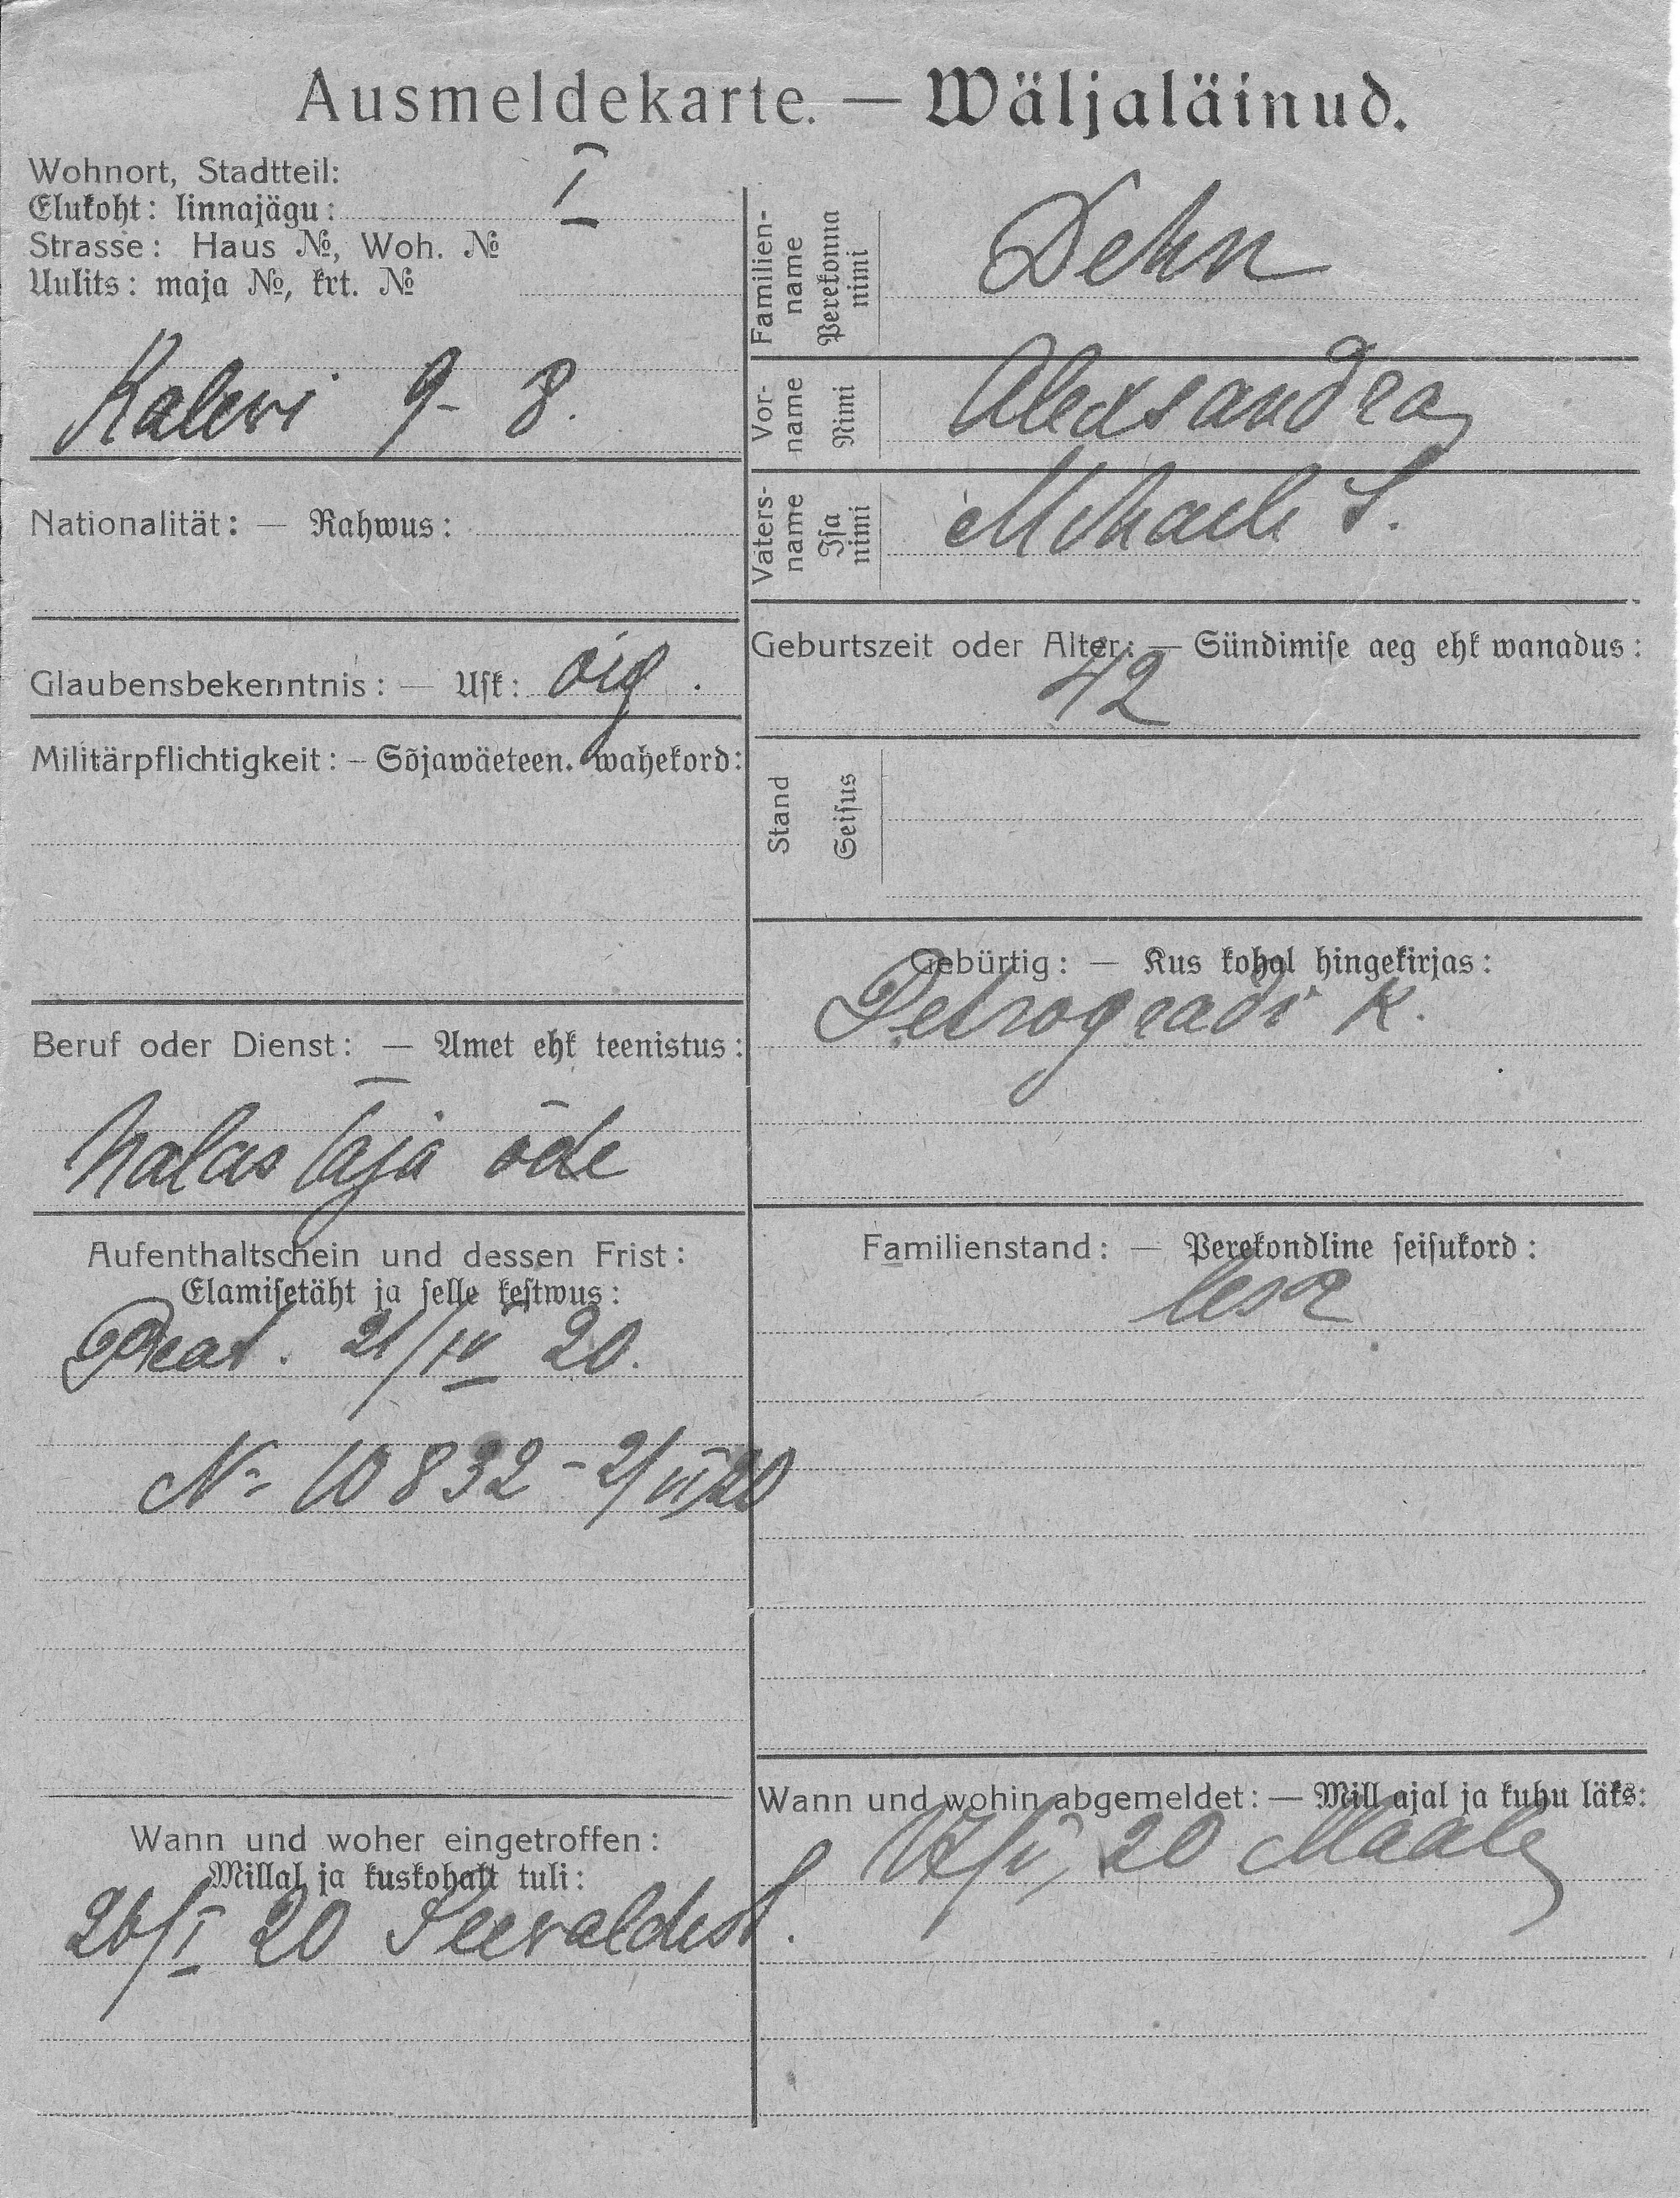 Ausmeldekarte. — Wäljaläinud.
Wohnort, Stadtteil:
Elukoht: linnajägu: I
Strasse: Haus №, Woh. №
Uulits: maja №, krt. №
Kalevi 9 - 8.
Nationalität: — Rahwus:
Glaubensbekenntnis: — Usk: õig.
Militärpflichtigkeit: – Sõjawäeteen. wahekord:
Beruf oder Dienst: — Amet ehk teenistus:
Halastaja õde
Aufenthaltschein und dessen Frist:
Elamisetäht ja selle kestwus:
21/IV 20.
№ 10832 - 2/VI 20
Wann und woher eingetroffen:
Millal ja kuskohalt tuli:
26/I 20 Seevaldest.
Familien-
name
Perekonna
nimi
Dehn
Vor-
name
Nimi
Alexsandra
Vaters-
name
Isa
nimi
Mihaeli t.
Geburtszeit oder Alter: — Sündimise aeg ehk wanadus:
42
Stand
Seisus
Gebürtig: — Kus kohal hingekirjas:
Petrogradi k.
Familienstand: — Perekondline seisukord:
lesk
Wann und wohin abgemeldet: — Mill ajal ja kuhu läks:
20 Maale